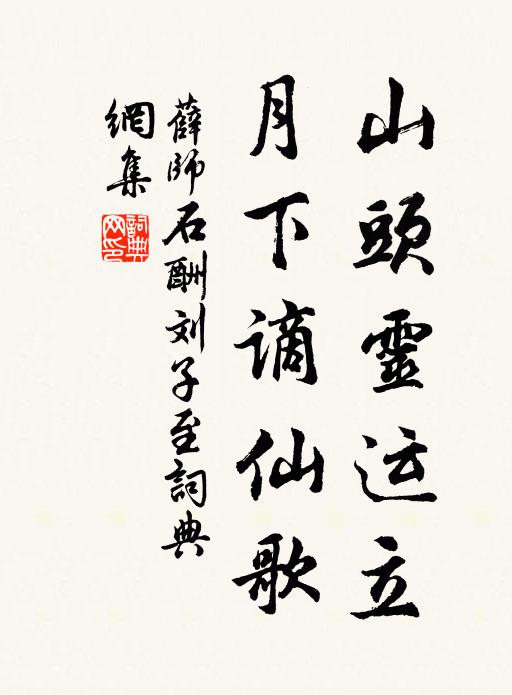 山頭靈运立
月下谪仙歌
薛師石酬刘子至詞典
網集
詞典网印